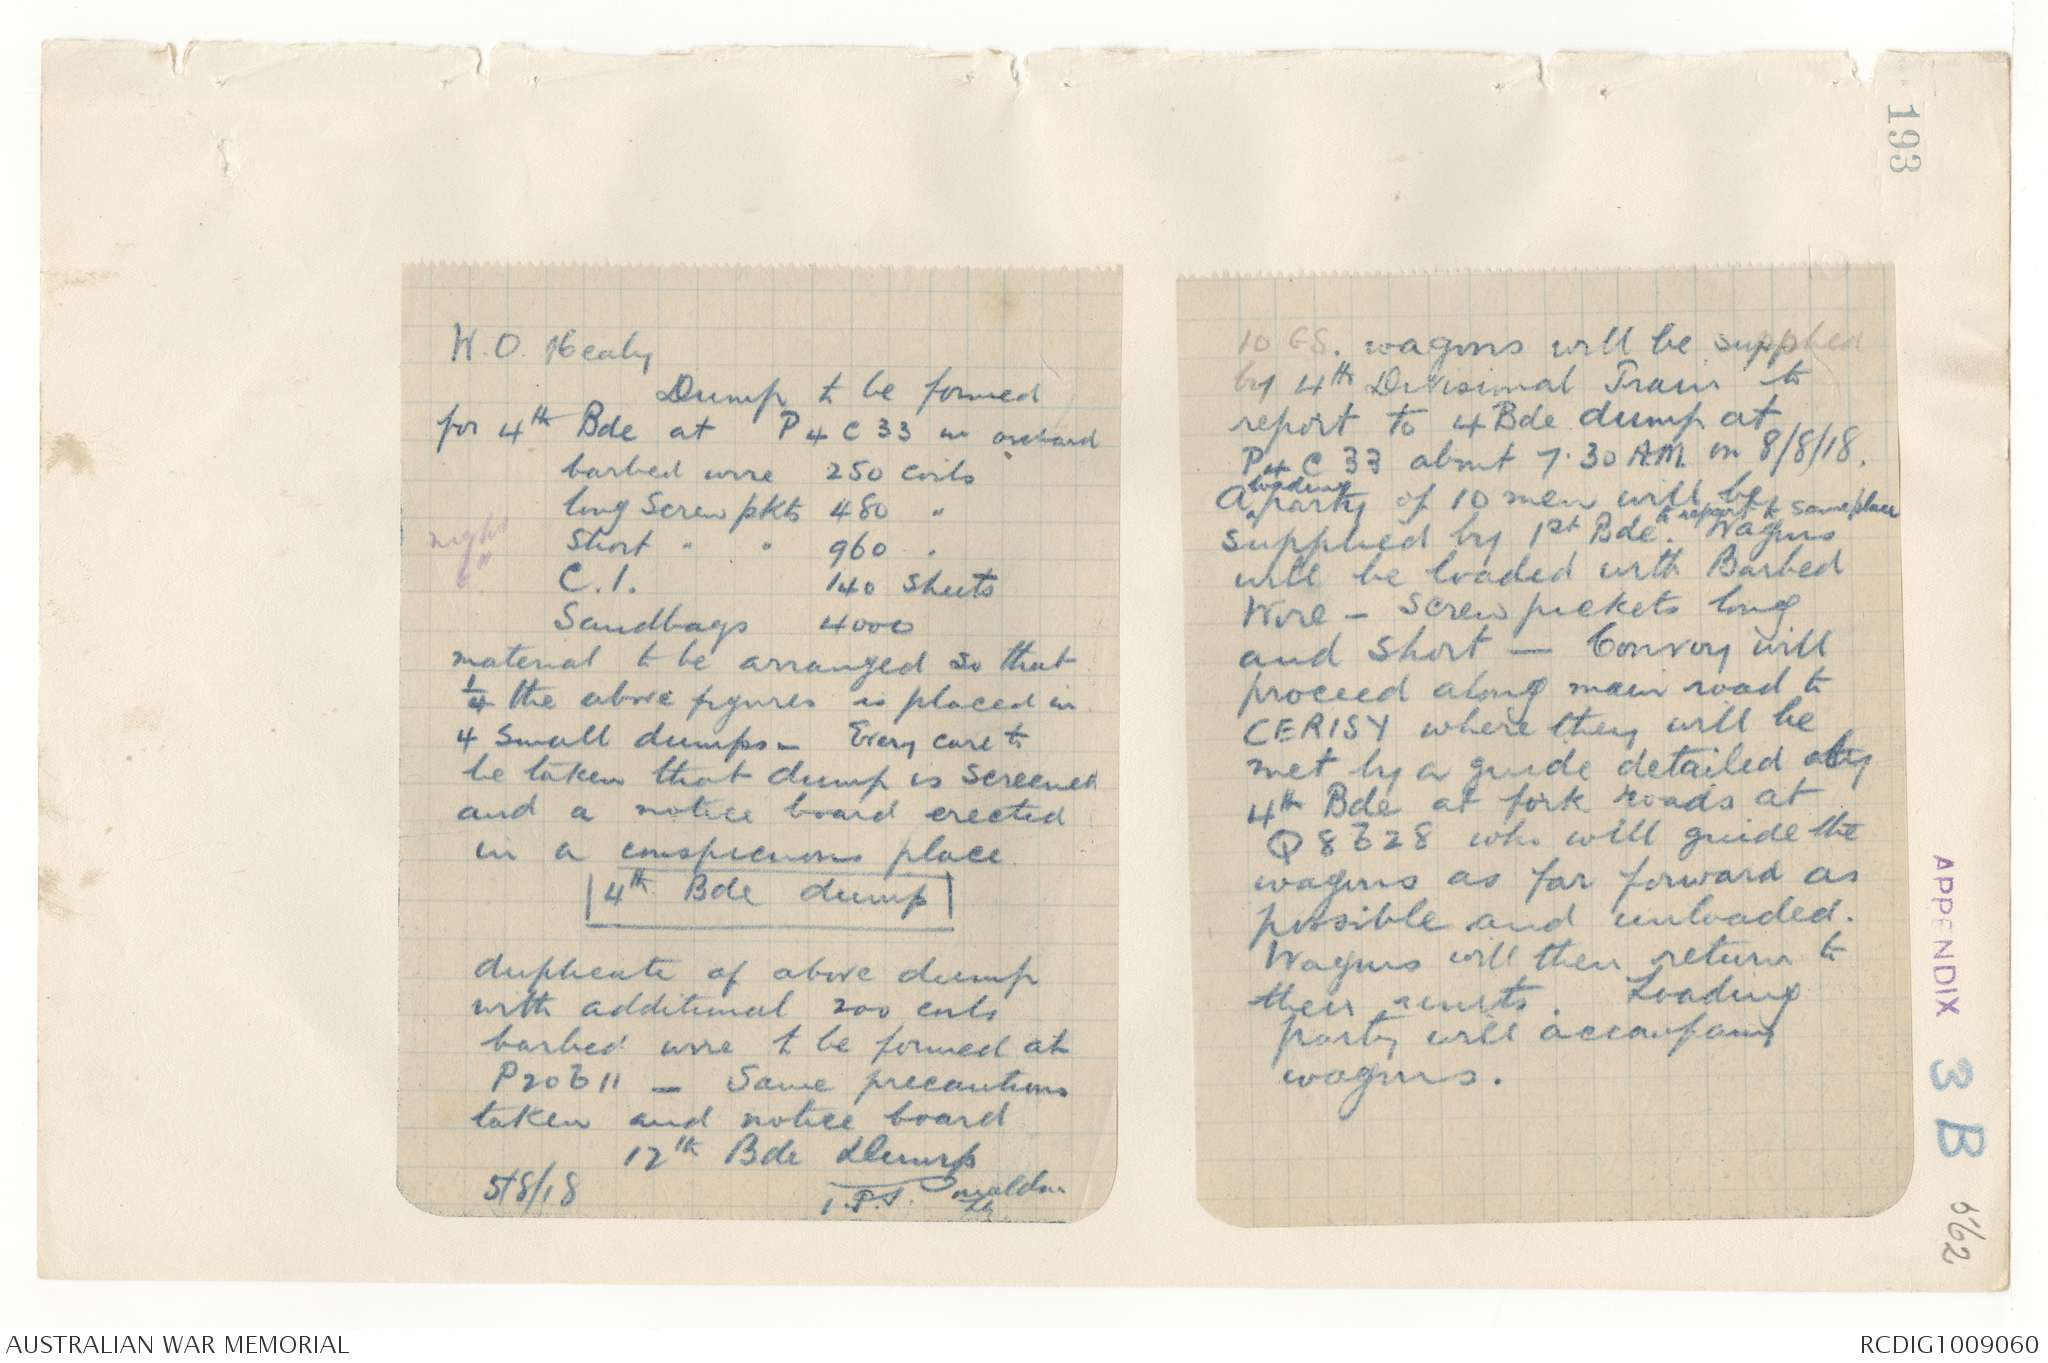 193
W.O. Healy
Dump to be formed
for 4th Bde at P4C33 in orchard
barbed wire 250 coils
long Screw pkts 480 "
Short " " 960 "
night
6th
C.I. 140 Sheets
Sandbags 4000
material to be arranged so that
1/4 the above figures is placed in
4 small dumps - Every care to
be taken that dump is screened
and a notice board erected
in a conspicuous place
4th Bde dump
duplicate of above dump
with additional 200 coils
barbed wire to be formed at
P20b11 - Same precautions
taken and notice board
12th Bde Dump
5/8/18
10 GS. wagons will be supplied
by 4th Divisional Train to
report to 4 Bde dump at
P4C33 about 7.30 A.M. on 8/8/18.
A loading party of 10 men will be
supplied by 1st Bde. to report to same place Wagons
will be loaded with Barbed
Wire - Screw pickets long
and short - Convoy will
proceed along main road to
CERISY where they will be
met by a guide detailed by
4th Bde at fork roads at
Q8b28 who will guide the
wagons as far forward as
possible and unloaded.
Wagons will then return to
their units. Loading
party will accompany
wagons.
APPENDIX 3B
562
AUSTRALIAN WAR MEMORIAL
RCDIG1009060